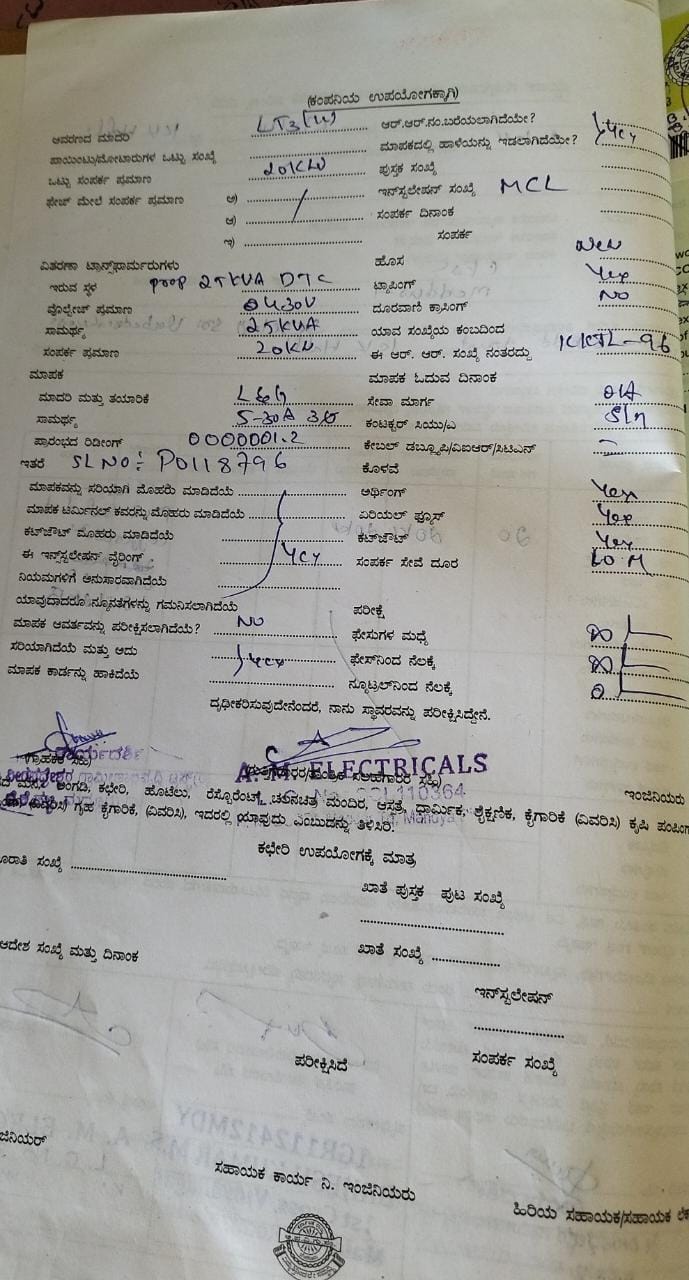 (ಕಂಪನಿಯ ಉಪಯೋಗಕ್ಕಾಗಿ)
ಆವರಣದ ಮಾದರಿ LT3(ii) ಆರ್.ಆರ್.ನಂ.ಬರೆಯಲಾಗಿದೆಯೇ?
ಪಾಯಿಂಟು/ಮೋಟಾರುಗಳ ಒಟ್ಟು ಸಂಖ್ಯೆ ಮಾಪಕದಲ್ಲಿ ಹಾಳೆಯನ್ನು ಇಡಲಾಗಿದೆಯೇ? Yes
ಒಟ್ಟು ಸಂಪರ್ಕ ಪ್ರಮಾಣ 20KW ಪುಸ್ತಕ ಸಂಖ್ಯೆ
ಫೇಜ್ ಮೇಲೆ ಸಂಪರ್ಕ ಪ್ರಮಾಣ ಅ) ಇನ್‌ಸ್ಟಲೇಷನ್ ಸಂಖ್ಯೆ MCL
ಆ) ಸಂಪರ್ಕ ದಿನಾಂಕ
ಇ) ಸಂಪರ್ಕ
ವಿತರಣಾ ಟ್ರಾನ್ಸ್‌ಫಾರ್ಮರುಗಳು ಹೊಸ New
ಇರುವ ಸ್ಥಳ prop 25KVA DTC ಟ್ಯಾಪಿಂಗ್ Yes
ವೋಲ್ಟೇಜ್ ಪ್ರಮಾಣ 430V ದೂರವಾಣಿ ಕ್ರಾಸಿಂಗ್ NO
ಸಾಮರ್ಥ್ಯ 25KVA ಯಾವ ಸಂಖ್ಯೆಯ ಕಂಬದಿಂದ
ಸಂಪರ್ಕ ಪ್ರಮಾಣ 20KW ಈ ಆರ್. ಆರ್. ಸಂಖ್ಯೆ ನಂತರದ್ದು
ಮಾಪಕ ಮಾಪಕ ಓದುವ ದಿನಾಂಕ
ಮಾದರಿ ಮತ್ತು ತಯಾರಿಕೆ L&G ಸೇವಾ ಮಾರ್ಗ OH
ಸಾಮರ್ಥ್ಯ 5-30A 3Ø ಕಂಟಕ್ಟರ್ ಸಿಯು/ಎ
ಪ್ರಾರಂಭದ ರಿಡೀಂಗ್ 0000001.2 ಕೇಬಲ್ ಡಬ್ಲ್ಯೂಪಿ/ವಿಐಆರ್/ಸಿಟಿಎನ್ —
ಇತರೆ SL NO: P0118796 ಕೊಳವೆ
ಮಾಪಕವನ್ನು ಸರಿಯಾಗಿ ಮೊಹರು ಮಾಡಿದೆಯೆ ಅರ್ಥಿಂಗ್ Yes
ಮಾಪಕ ಟರ್ಮಿನಲ್ ಕವರನ್ನು ಮೊಹರು ಮಾಡಿದೆಯೆ ಏರಿಯಲ್ ಫ್ಯೂಸ್ Yes
ಕಟ್‌ಔಟ್ ಮೊಹರು ಮಾಡಿದೆಯೆ ಕಟ್‌ಔಟ್ Yes
ಈ ಇನ್‌ಸ್ಟಲೇಷನ್ ವೈರಿಂಗ್ Yes ಸಂಪರ್ಕ ಸೇವೆ ದೂರ 10 M
ನಿಯಮಗಳಿಗೆ ಅನುಸಾರವಾಗಿದೆಯೆ
ಯಾವುದಾದರೂ ನ್ಯೂನತೆಗಳನ್ನು ಗಮನಿಸಲಾಗಿದೆಯೆ ಪರೀಕ್ಷೆ
ಮಾಪಕ ಆವರ್ತವನ್ನು ಪರೀಕ್ಷಿಸಲಾಗಿದೆಯೆ? NO ಫೇಸುಗಳ ಮಧ್ಯೆ
ಸರಿಯಾಗಿದೆಯೆ ಮತ್ತು ಅದು Yes ಫೇಸ್‌ನಿಂದ ನೆಲಕ್ಕೆ
ಮಾಪಕ ಕಾರ್ಡನ್ನು ಹಾಕಿದೆಯೆ ನ್ಯೂಟ್ರಲ್‌ನಿಂದ ನೆಲಕ್ಕೆ
ದೃಢೀಕರಿಸುವುದೇನೆಂದರೆ, ನಾನು ಸ್ಥಾವರವನ್ನು ಪರೀಕ್ಷಿಸಿದ್ದೇನೆ.
ಗ್ರಾಹಕರ ಸಹಿ
ಕಾರ್ಯದರ್ಶಿ
A. M. ELECTRICALS
ಇಂಜಿನಿಯರು
ಮನೆ, ಅಂಗಡಿ, ಕಛೇರಿ, ಹೊಟೆಲು, ರೆಸ್ಟೊರೆಂಟ್, ಚಲನಚಿತ್ರ ಮಂದಿರ, ಆಸ್ಪತ್ರೆ, ಧಾರ್ಮಿಕ, ಶೈಕ್ಷಣಿಕ, ಕೈಗಾರಿಕೆ (ವಿವರಿಸಿ) ಕೃಷಿ ಪಂಪಿಂಗ್
(ವಿವರಿಸಿ) ಗೃಹ ಕೈಗಾರಿಕೆ, (ವಿವರಿಸಿ), ಇದರಲ್ಲಿ ಯಾವುದು ಎಂಬುದನ್ನು ತಿಳಿಸಿರಿ.
ಕಛೇರಿ ಉಪಯೋಗಕ್ಕೆ ಮಾತ್ರ
ಸಂಖ್ಯೆ ಖಾತೆ ಪುಸ್ತಕ ಪುಟ ಸಂಖ್ಯೆ
ಆದೇಶ ಸಂಖ್ಯೆ ಮತ್ತು ದಿನಾಂಕ ಖಾತೆ ಸಂಖ್ಯೆ
ಇನ್‌ಸ್ಟಲೇಷನ್
ಪರೀಕ್ಷಿಸಿದೆ ಸಂಪರ್ಕ ಸಂಖ್ಯೆ
ಸಹಾಯಕ ಕಾರ್ಯ ನಿ. ಇಂಜಿನಿಯರು
ಹಿರಿಯ ಸಹಾಯಕ/ಸಹಾಯಕ